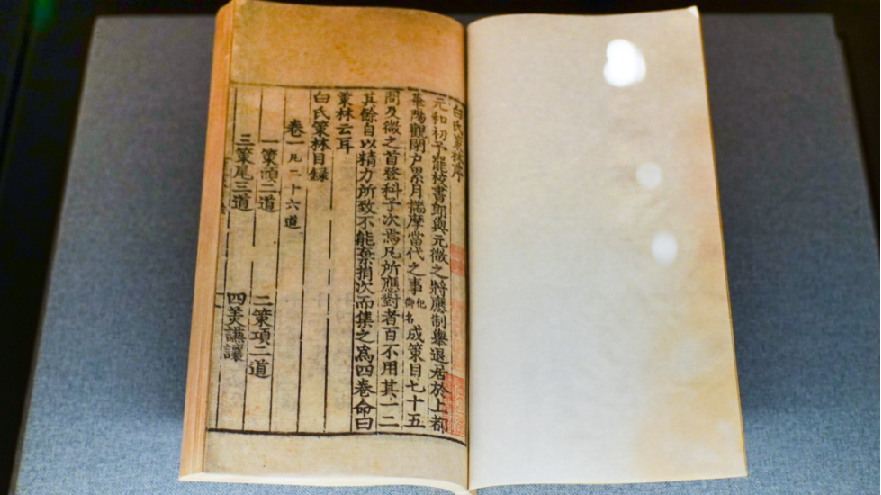 白氏策林序
元和初予罷校書郎與元微之將應制舉退居於上都
華陽觀閉戶累月揣摩當代之事犯御名成策目七十五
門及微之首登科予次焉凡所應對者百不用其一二
其餘自以精力所致不能棄捐次而集之爲四卷命曰
策林云耳
白氏策林目録
卷一凡二十六道
一策頭二道 二策項二道
三策尾三道 四美謙讓